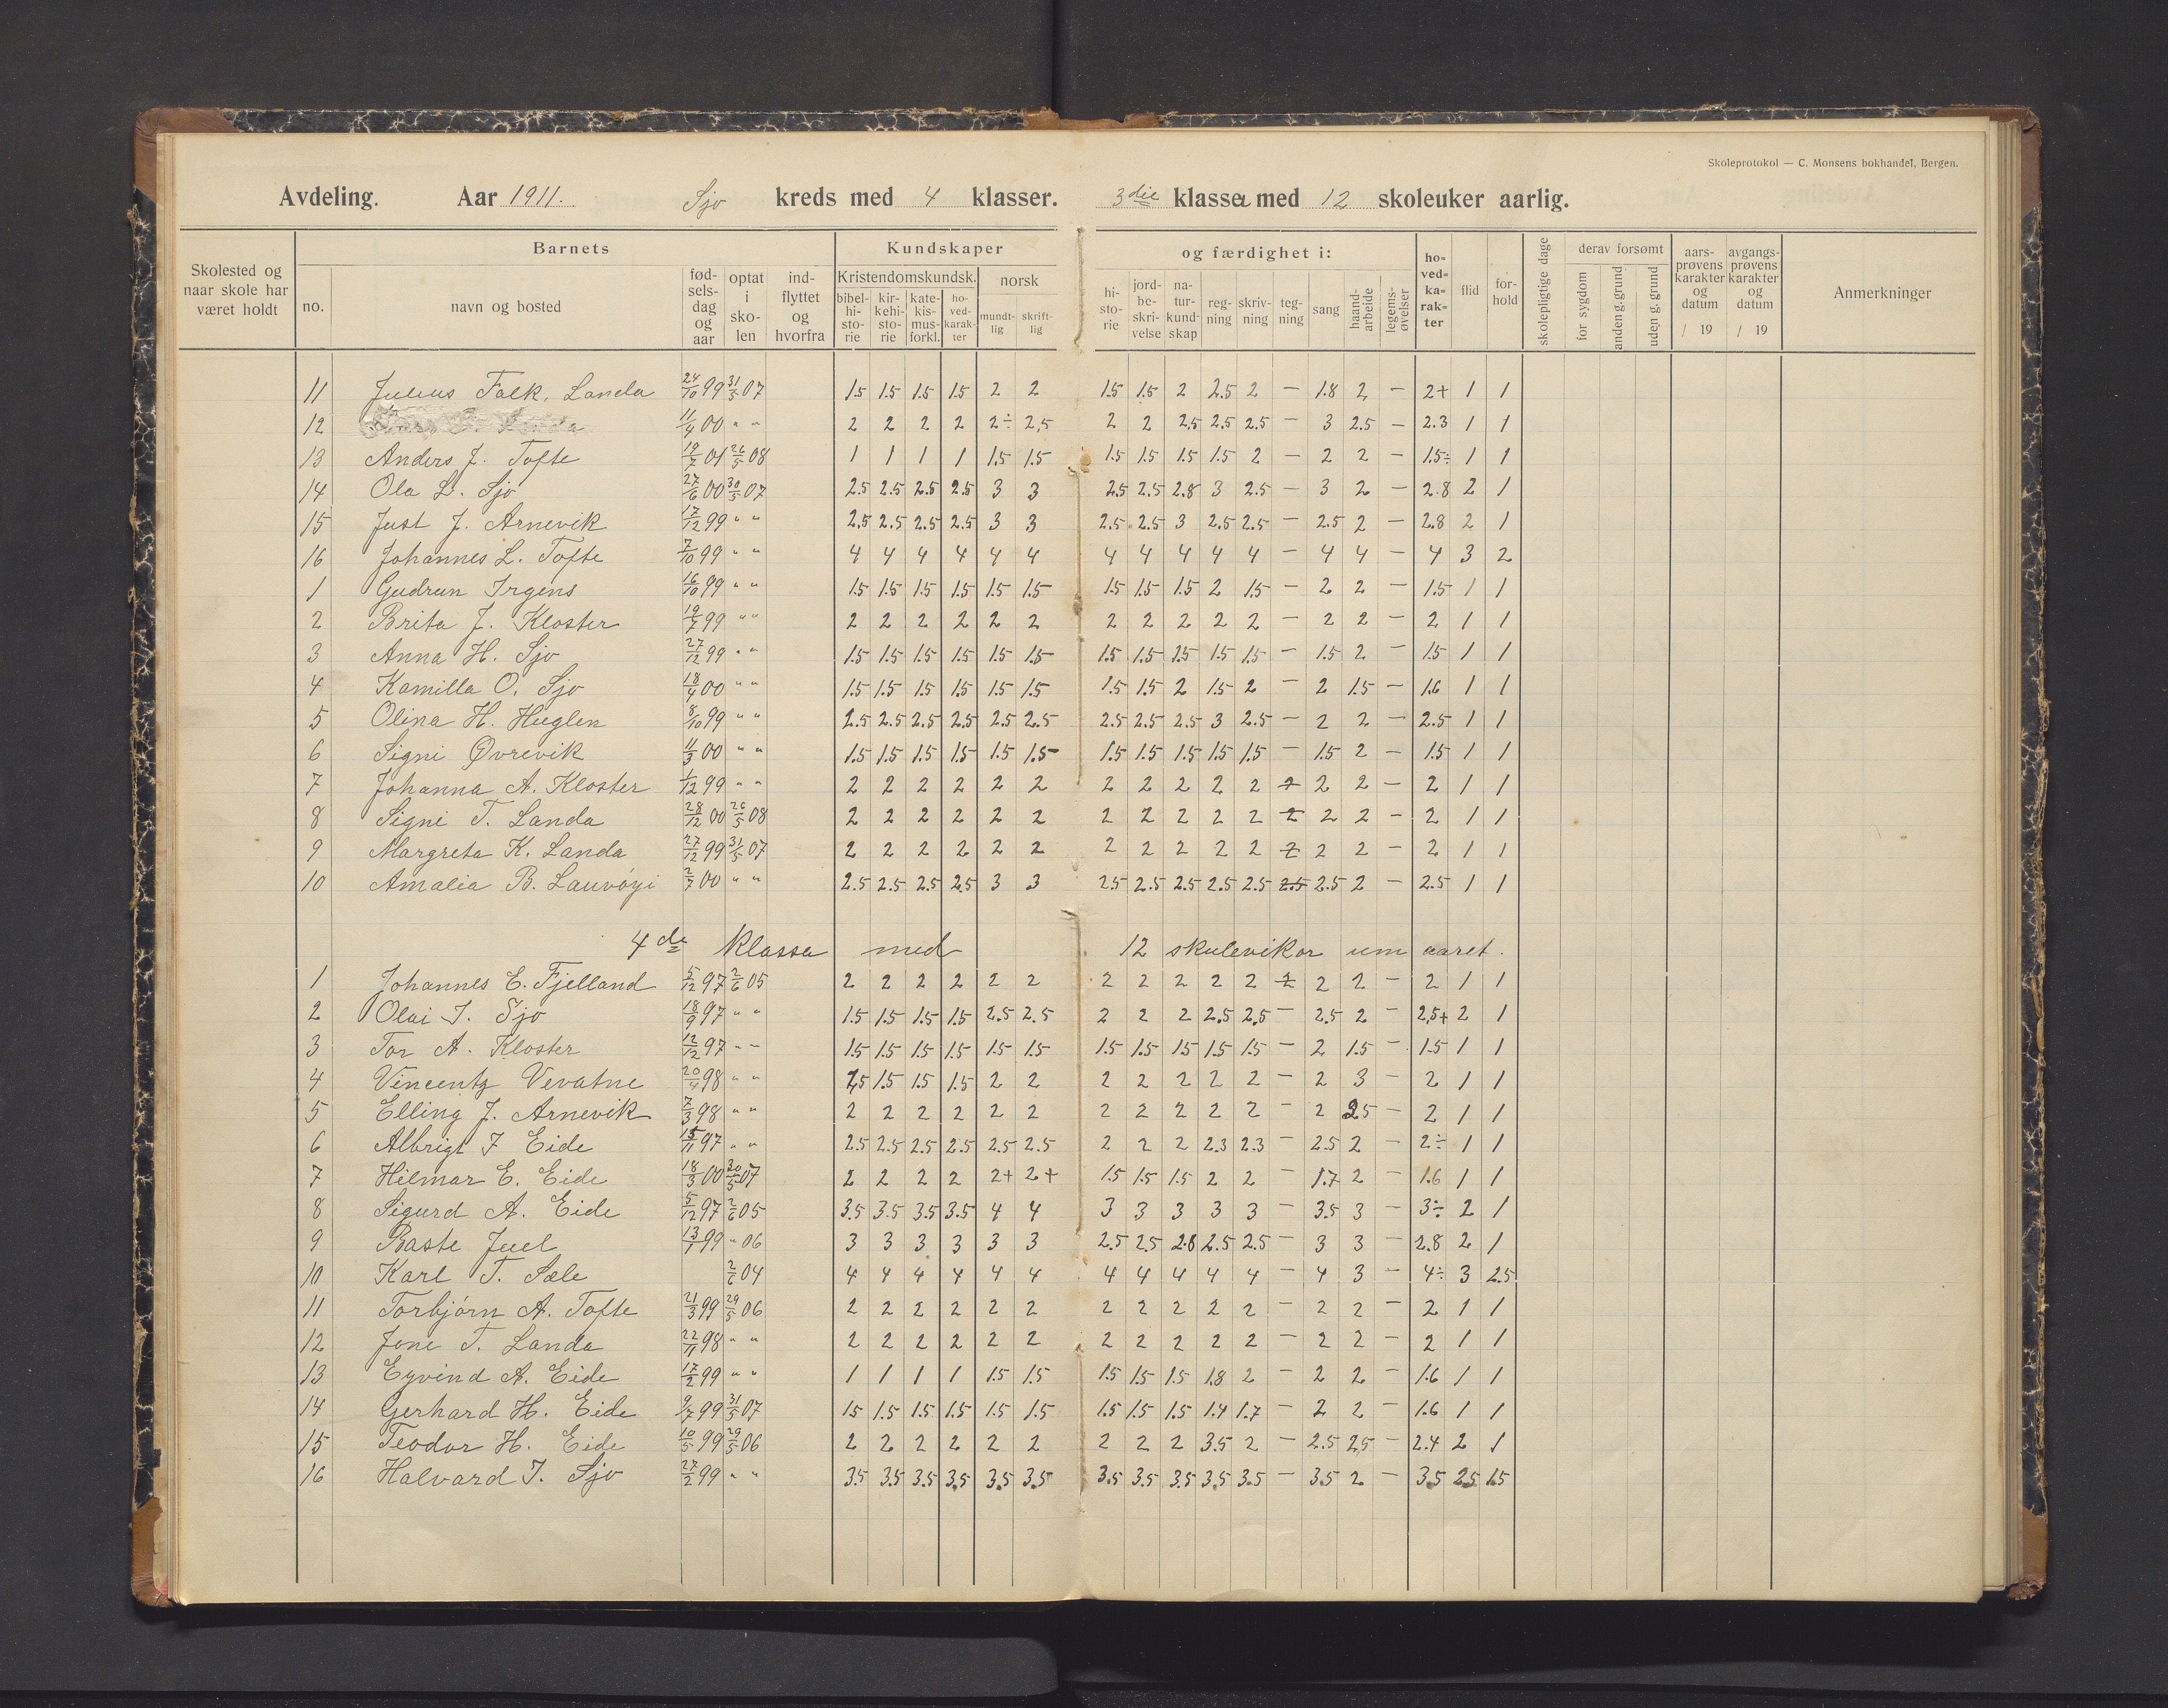 Skoleprotokol — C. Monsens bokhandel, Bergen.
Avdeling. Aar 1911. Sjo kreds med 4 klasser. 3die klasse med 12 skoleuker aarlig.
Skolested og naar skole har været holdt
Barnets
no. navn og bosted fødselsdag og aar optat i skolen indflyttet og hvorfra
Kundskaper og færdighet i:
Kristendomskundsk. norsk
bibelhistorie kirkehistorie katekismus forkl. hovedkarakter mundtlig skriftlig
historie jordbeskrivelse naturkundskap regning skrivning tegning sang haandarbeide legemsøvelser
hovedkarakter flid forhold
skolepligtige dage derav forsømt for sygdom anden g. grund uden g. grund
aarsprøvens karakter og datum / 19 avgangsprøvens karakter og datum / 19 Anmerkninger
11 Julius Falk, Landa 24/10 99 31/5 07 1.5 1.5 1.5 1.5 2 2 1.5 1.5 2 2.5 2 — 1.8 2 — 2+ 1 1
12 11/4 00 " " 2 2 2 2 2÷ 2,5 2 2 2.5 2.5 2.5 — 3 2.5 — 2.3 1 1
13 Anders J. Tofte 19/7 01 26/5 08 1 1 1 1 1.5 1.5 1.5 1.5 1.5 1.5 2 — 2 2 — 1.5÷ 1 1
14 Ola L. Sjo 27/6 00 30/5 07 2.5 2.5 2.5 2.5 3 3 2.5 2.5 2.8 3 2.5 — 3 2 — 2.8 2 1
15 Just J. Arnevik 17/12 99 " " 2.5 2.5 2.5 2.5 3 3 2.5 2.5 3 2.5 2.5 — 2.5 2 — 2.8 2 1
16 Johannes L. Tofte 7/10 99 " " 4 4 4 4 4 4 4 4 4 4 4 — 4 4 — 4 3 2
1 Gudrun Irgens 16/10 99 " " 1.5 1.5 1.5 1.5 1.5 1.5 1.5 1.5 1.5 2 1.5 — 2 2 — 1.5 1 1
2 Brita J. Kloster 19/7 99 " " 2 2 2 2 2 2 2 2 2 2 2 — 2 2 — 2 1 1
3 Anna H. Sjo 27/12 99 " " 1.5 1.5 1.5 1.5 1.5 1.5 1.5 1.5 1.5 1.5 1.5 — 1.5 2 — 1.5 1 1
4 Kamilla O. Sjo 18/4 00 " " 1.5 1.5 1.5 1.5 1.5 1.5 1.5 1.5 2 1.5 2 — 2 1.5 — 1.6 1 1
5 Olina H. Huglen 8/10 99 " " 2.5 2.5 2.5 2.5 2.5 2.5 2.5 2.5 2.5 3 2.5 — 2 2 — 2.5 1 1
6 Signi Øvrevik 11/3 00 " " 1.5 1.5 1.5 1.5 1.5 1.5 1.5 1.5 1.5 1.5 1.5 — 1.5 2 — 1.5 1 1
7 Johanna A. Kloster 1/12 99 " " 2 2 2 2 2 2 2 2 2 2 2 2 2 2 — 2 1 1
8 Signi T. Landa 28/12 00 26/5 08 2 2 2 2 2 2 2 2 2 2 2 2 2 2 — 2 1 1
9 Margreta K. Landa 27/12 99 31/5 07 2 2 2 2 2 2 2 2 2 2 2 2 2 2 — 2 1 1
10 Amalia B. Lauvöyi 2/7 00 " " 2.5 2.5 2.5 2.5 3 3 2.5 2.5 2.5 2.5 2.5 2.5 2.5 2 — 2.5 1 1
4de klassa med 12 skulevikor um aaret.
1 Johannes E. Fjelland 5/12 97 2/6 05 2 2 2 2 2 2 2 2 2 2 2 2 2 2 — 2 1 1
2 Olai I. Sjo 18/9 97 " " 1.5 1.5 1.5 1.5 2.5 2.5 2 2 2 2.5 2,5 — 2.5 2 — 2,5+ 2 1
3 Tor A. Kloster 12/12 97 " " 1.5 1.5 1.5 1.5 1.5 1.5 1.5 1.5 1.5 1.5 1.5 — 2 1.5 — 1.5 1 1
4 Vincentz Vevatne 20/4 98 " " 1,5 1.5 1.5 1.5 2 2 2 2 2 2 2 — 2 3 — 2 1 1
5 Elling J. Arnevik 7/3 98 " " 2 2 2 2 2 2 2 2 2 2 2 — 2 2.5 — 2 1 1
6 Albrigt I Eide 15/11 97 " " 2.5 2.5 2.5 2.5 2.5 2.5 2 2 2 2.3 2.3 — 2.5 2 — 2÷ 1 1
7 Hilmar E. Eide 18/3 00 30/5 07 2 2 2 2 2+ 2+ 1.5 1.5 1.5 2 2 — 1.7 2 — 1.6 1 1
8 Sigurd A. Eide 5/12 97 2/6 05 3.5 3.5 3.5 3.5 4 4 3 3 3 3 3 — 3.5 3 — 3÷ 2 1
9 Baste Juel 13/1 99 " 06 3 3 3 3 3 3 2.5 2.5 2.8 2.5 2.5 — 3 3 — 2.8 2 1
10 Karl T. Sæle 2/6 04 4 4 4 4 4 4 4 4 4 4 4 — 4 3 — 4÷ 3 2.5
11 Torbjörn A. Tofte 21/3 99 29/5 06 2 2 2 2 2 2 2 2 2 2 2 — 2 2 — 2 1 1
12 Jone T. Landa 22/11 98 " " 2 2 2 2 2 2 2 2 2 2 2 — 2 2 — 2 1 1
13 Eyvind A. Eide 17/2 99 " " 1 1 1 1 1.5 1.5 1.5 1.5 1.5 1.8 2 — 2 2 — 1.6 1 1
14 Gerhard H. Eide 9/7 99 31/5 07 1.5 1.5 1.5 1.5 1.5 1.5 1.5 1.5 1.5 1.4 1.7 — 2 2 — 1.6 1 1
15 Teodor H. Eide 10/5 99 29/5 06 2 2 2 2 2 2 2 2 2 3.5 2 — 2.5 2.5 — 2.4 2 1
16 Halvard I. Sjo 27/2 99 " " 3.5 3.5 3.5 3.5 3.5 3.5 3.5 3.5 3.5 3.5 3.5 — 3.5 2 — 3.5 2.5 1.5